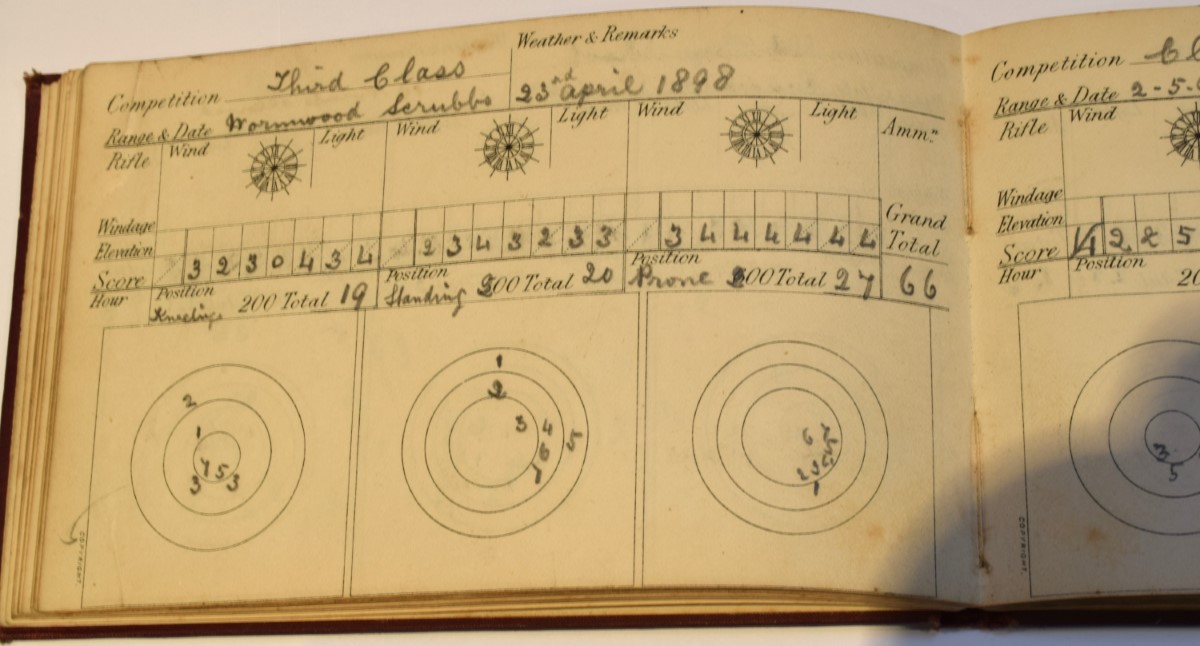 Weather & Remarks
Competition Third Class
Range & Date Wormwood Scrubbs 23rd April 1898
Rifle Wind Light Wind Light Wind Light Ammn.
Windage
Elevation
Grand Total
Score 3 2 3 0 4 3 4 2 3 4 3 2 3 3 3 4 4 4 4 4 4
Hour Position Kneeling 200 Total 19 Position Standing 200 Total 20 Position Prone 200 Total 27 66
2
1
4 5
3 3
1
2
3 4
5
6
1
6
2 3
1
COPYRIGHT
Competition Cl
Range & Date 2-5-
Rifle Wind
Windage
Elevation
Score 4 2 2 5
Hour Position
20
3
5
COPYRIGHT